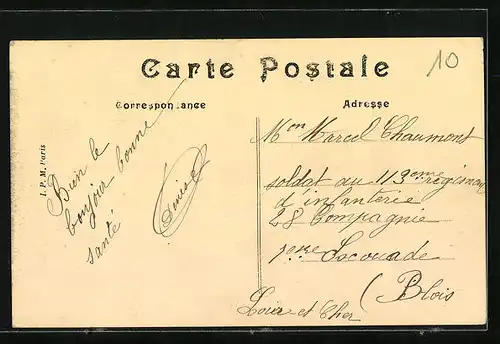 Carte Postale
10
Correspondance
Adresse
I. P. M. Paris
Bien le
bonjour bonne
santé
Mon Marcel Chaumont
soldat au 113eme régiment
d'infanterie
28 Compagnie
1ere Escouade
(Blois
Loir et Cher